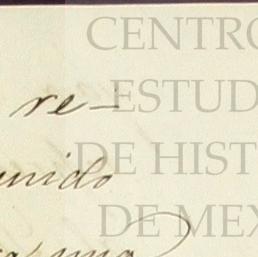 CENTRO
re-
ESTUD
unido
DE HIST
DE MEX
una